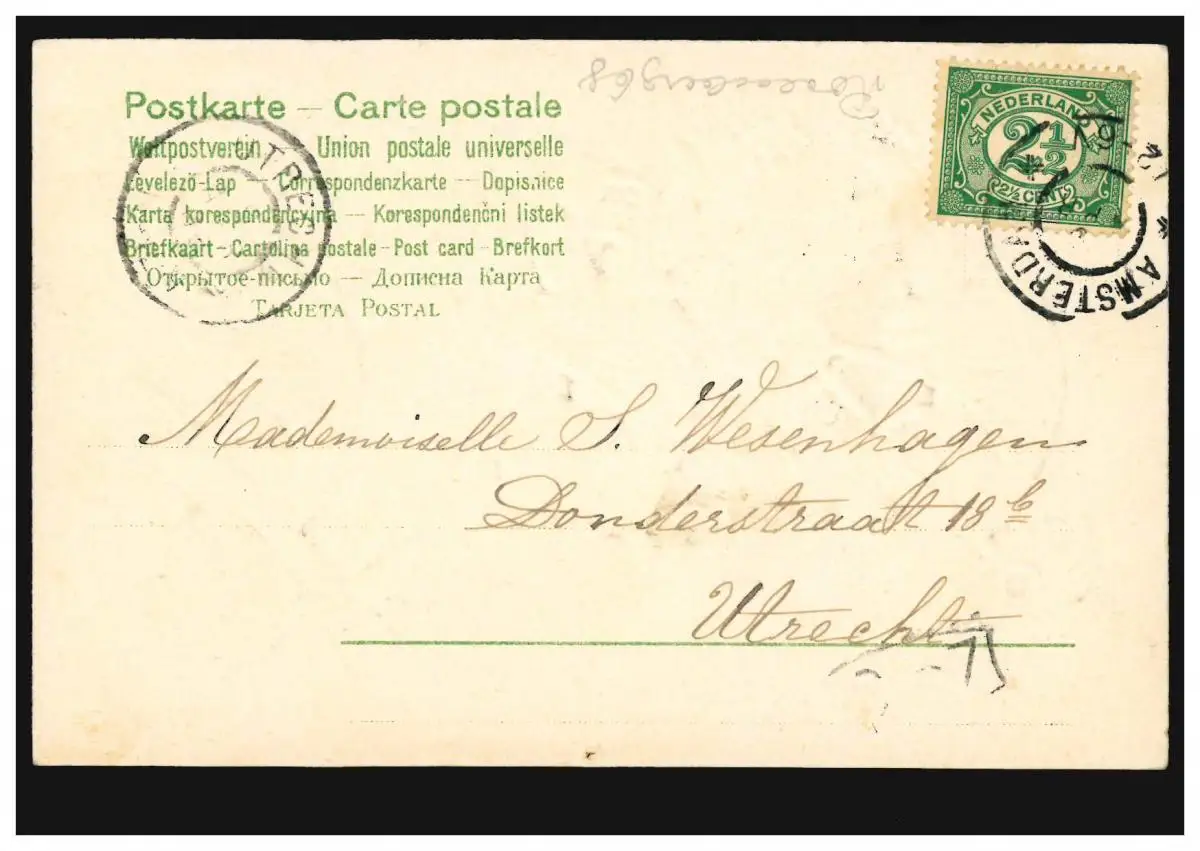 Postkarte – Carte postale
Weltpostverein – Union postale universelle
Levelező-Lap – Correspondenzkarte – Dopisnice
Karta korespondencyjna – Korespondenční listek
Briefkaart – Cartolina postale – Post card – Brefkort
Открытое-письмо – Дописна Карта
TARJETA POSTAL
UTRECHT
NEDERLAND
2½
2½ CENT
AMSTERDAM
Mademoiselle S. Wesenhagen
Donderstraat 18 b
Utrecht